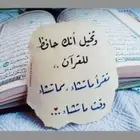 وتخيل أنك حافظ
للقرآن ..
تقرأ ماتشاء ، مما تشاء
وقت ماتشاء ..